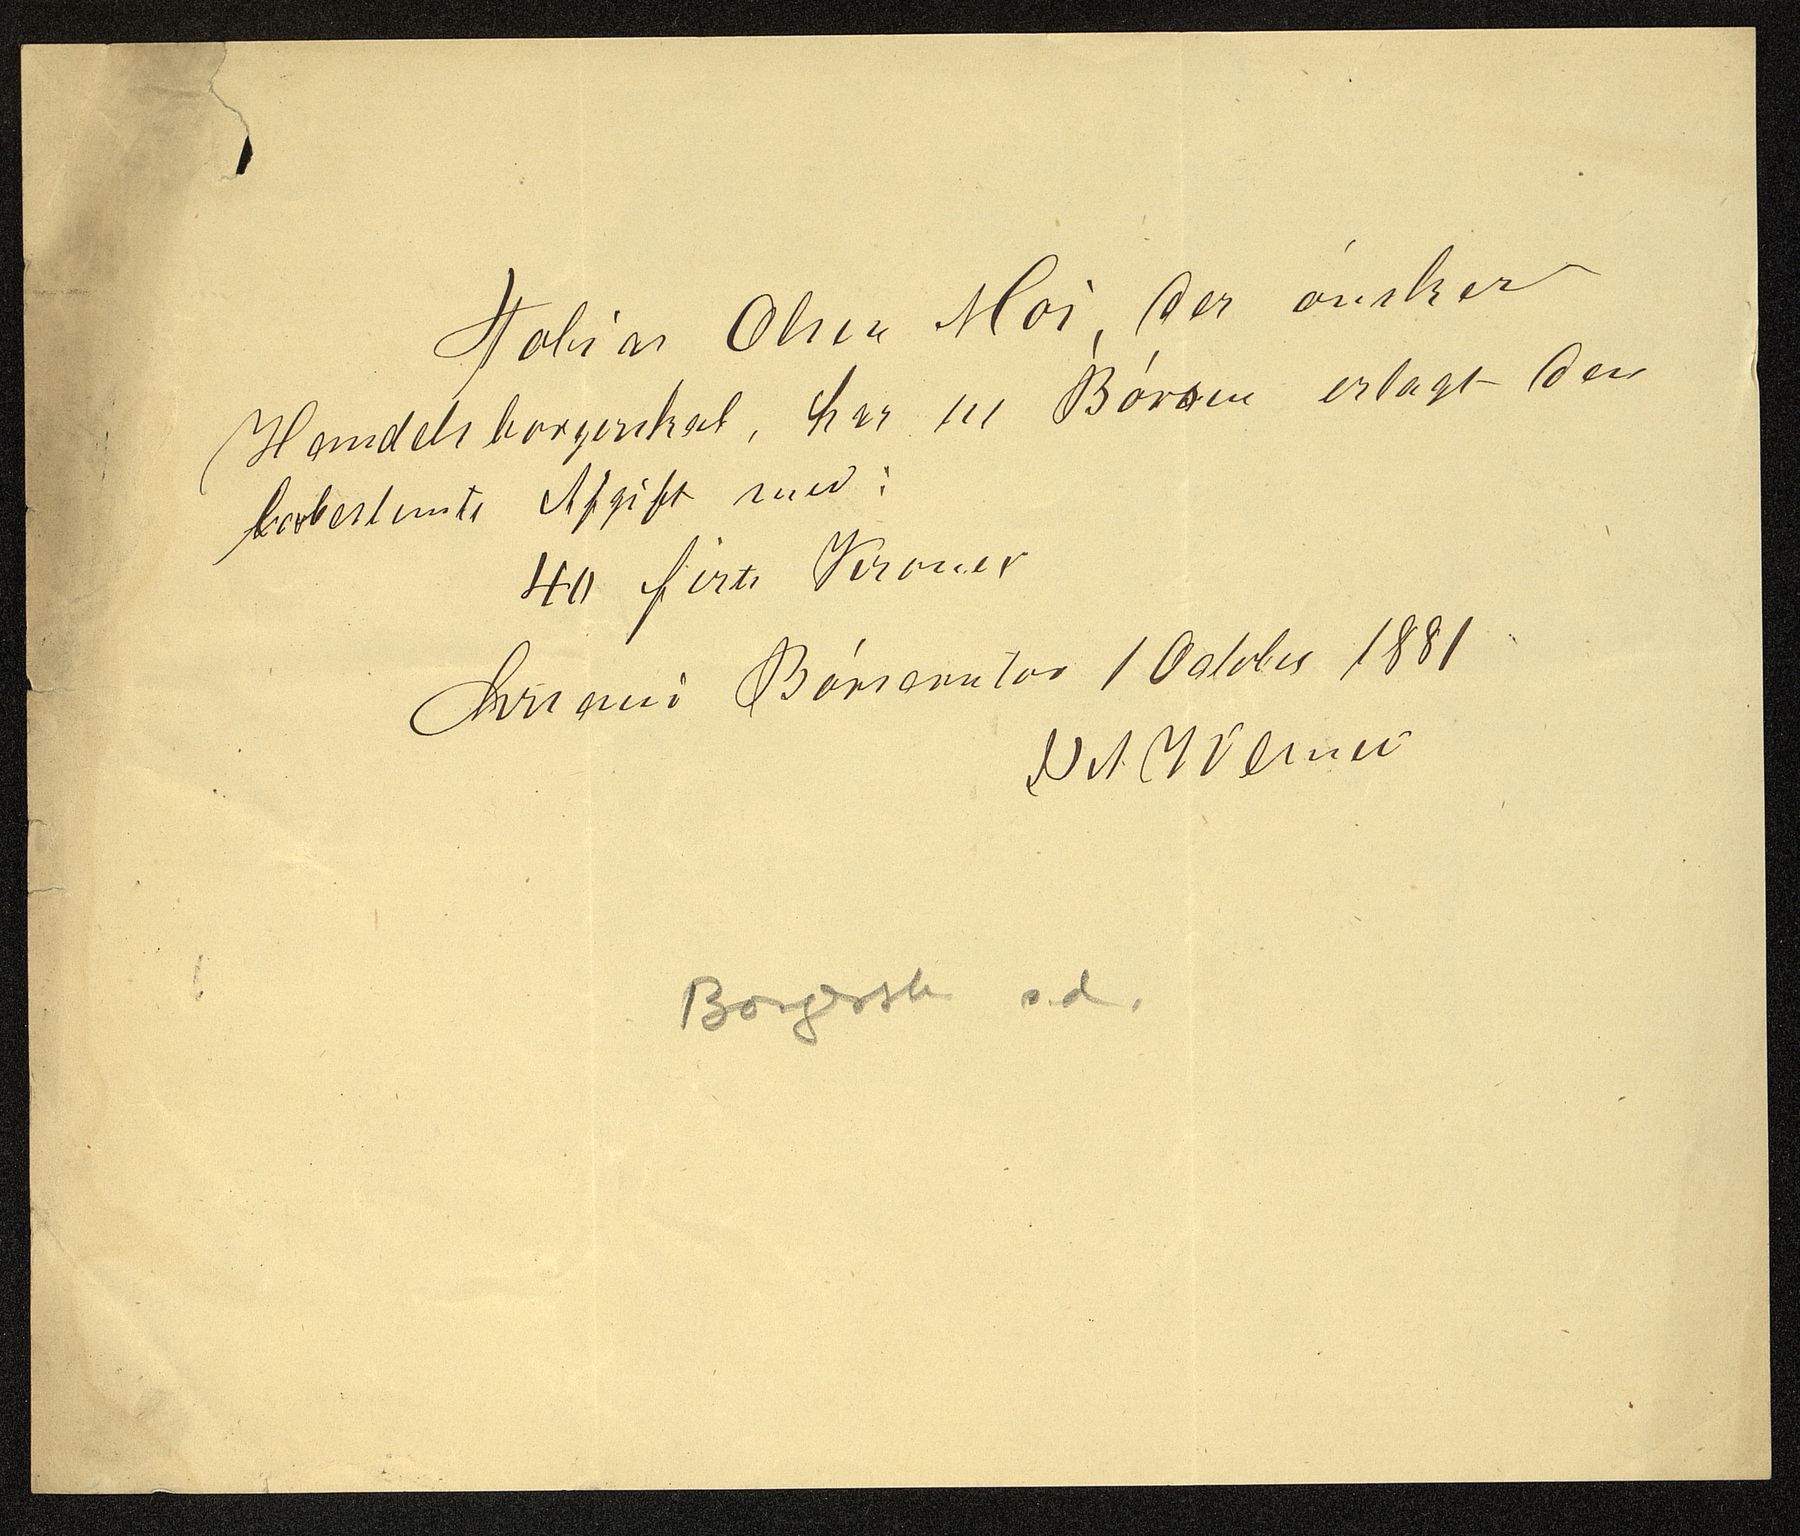 Tobias Olsen Moi, der ønsker
Handelsborgerskab, har til Børsen erlagt den
lovbestemte Afgift med:
40 firti Kroner
Christiania Børscontor 1 October 1881
N A Werner
Borgersk s.d.